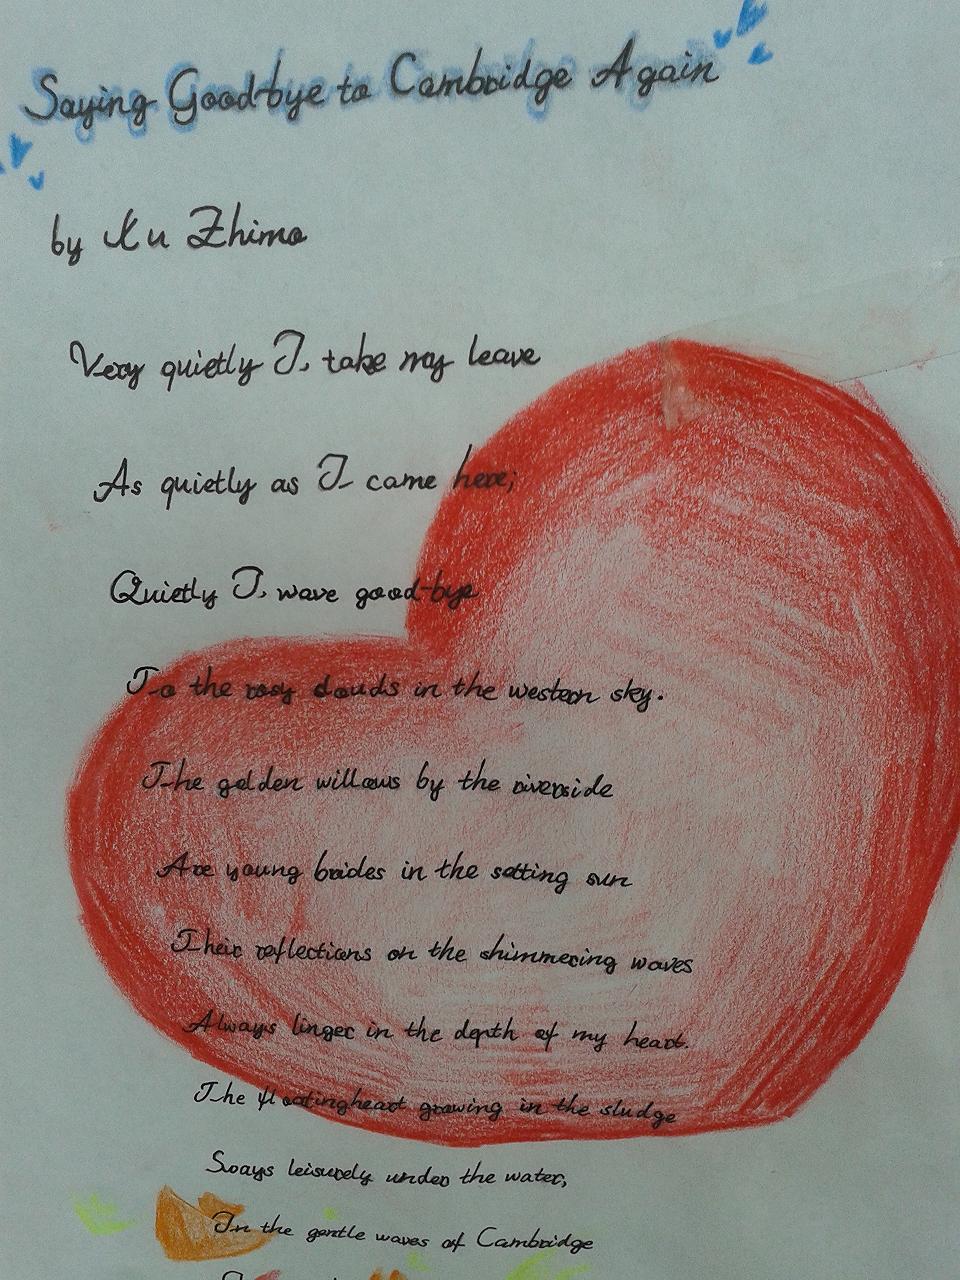 Saying Good-bye to Cambridge Again
by Xu Zhimo
Very quietly I take my leave
As quietly as I came here;
Quietly I wave good-bye
To the rosy clouds in the western sky.
The golden willows by the riverside
Are young brides in the setting sun
Their reflections on the shimmering waves
Always linger in the depth of my heart.
The floatingheart growing in the sludge
Sways leisurely under the water,
In the gentle waves of Cambridge